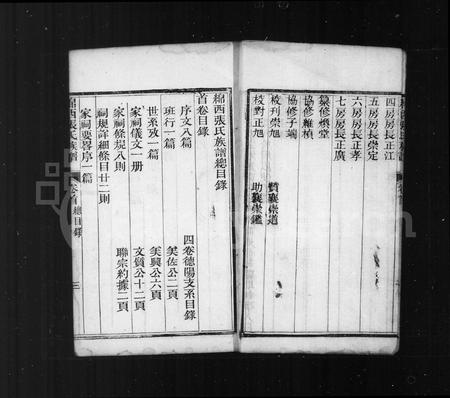 四房房長正江
五房房長崇定
六房房長正孝
七房房長正廣
纂修煥堂
協修維楨
協修子端
校刊崇旭 贊襄崇道
校對正旭 助襄崇鑑
綿西張氏族譜總目錄
首卷目錄
序文八篇 四卷德陽支系目錄
班行一篇 美佐公二頁
世系攷一篇 美興公六頁
家祠儀文一册 文質公十二頁
家祠條規八則 聯宗約據二頁
祠規詳細條目廿二則
家祠要畧序一篇
綿西張氏族譜 卷首 總目錄 三